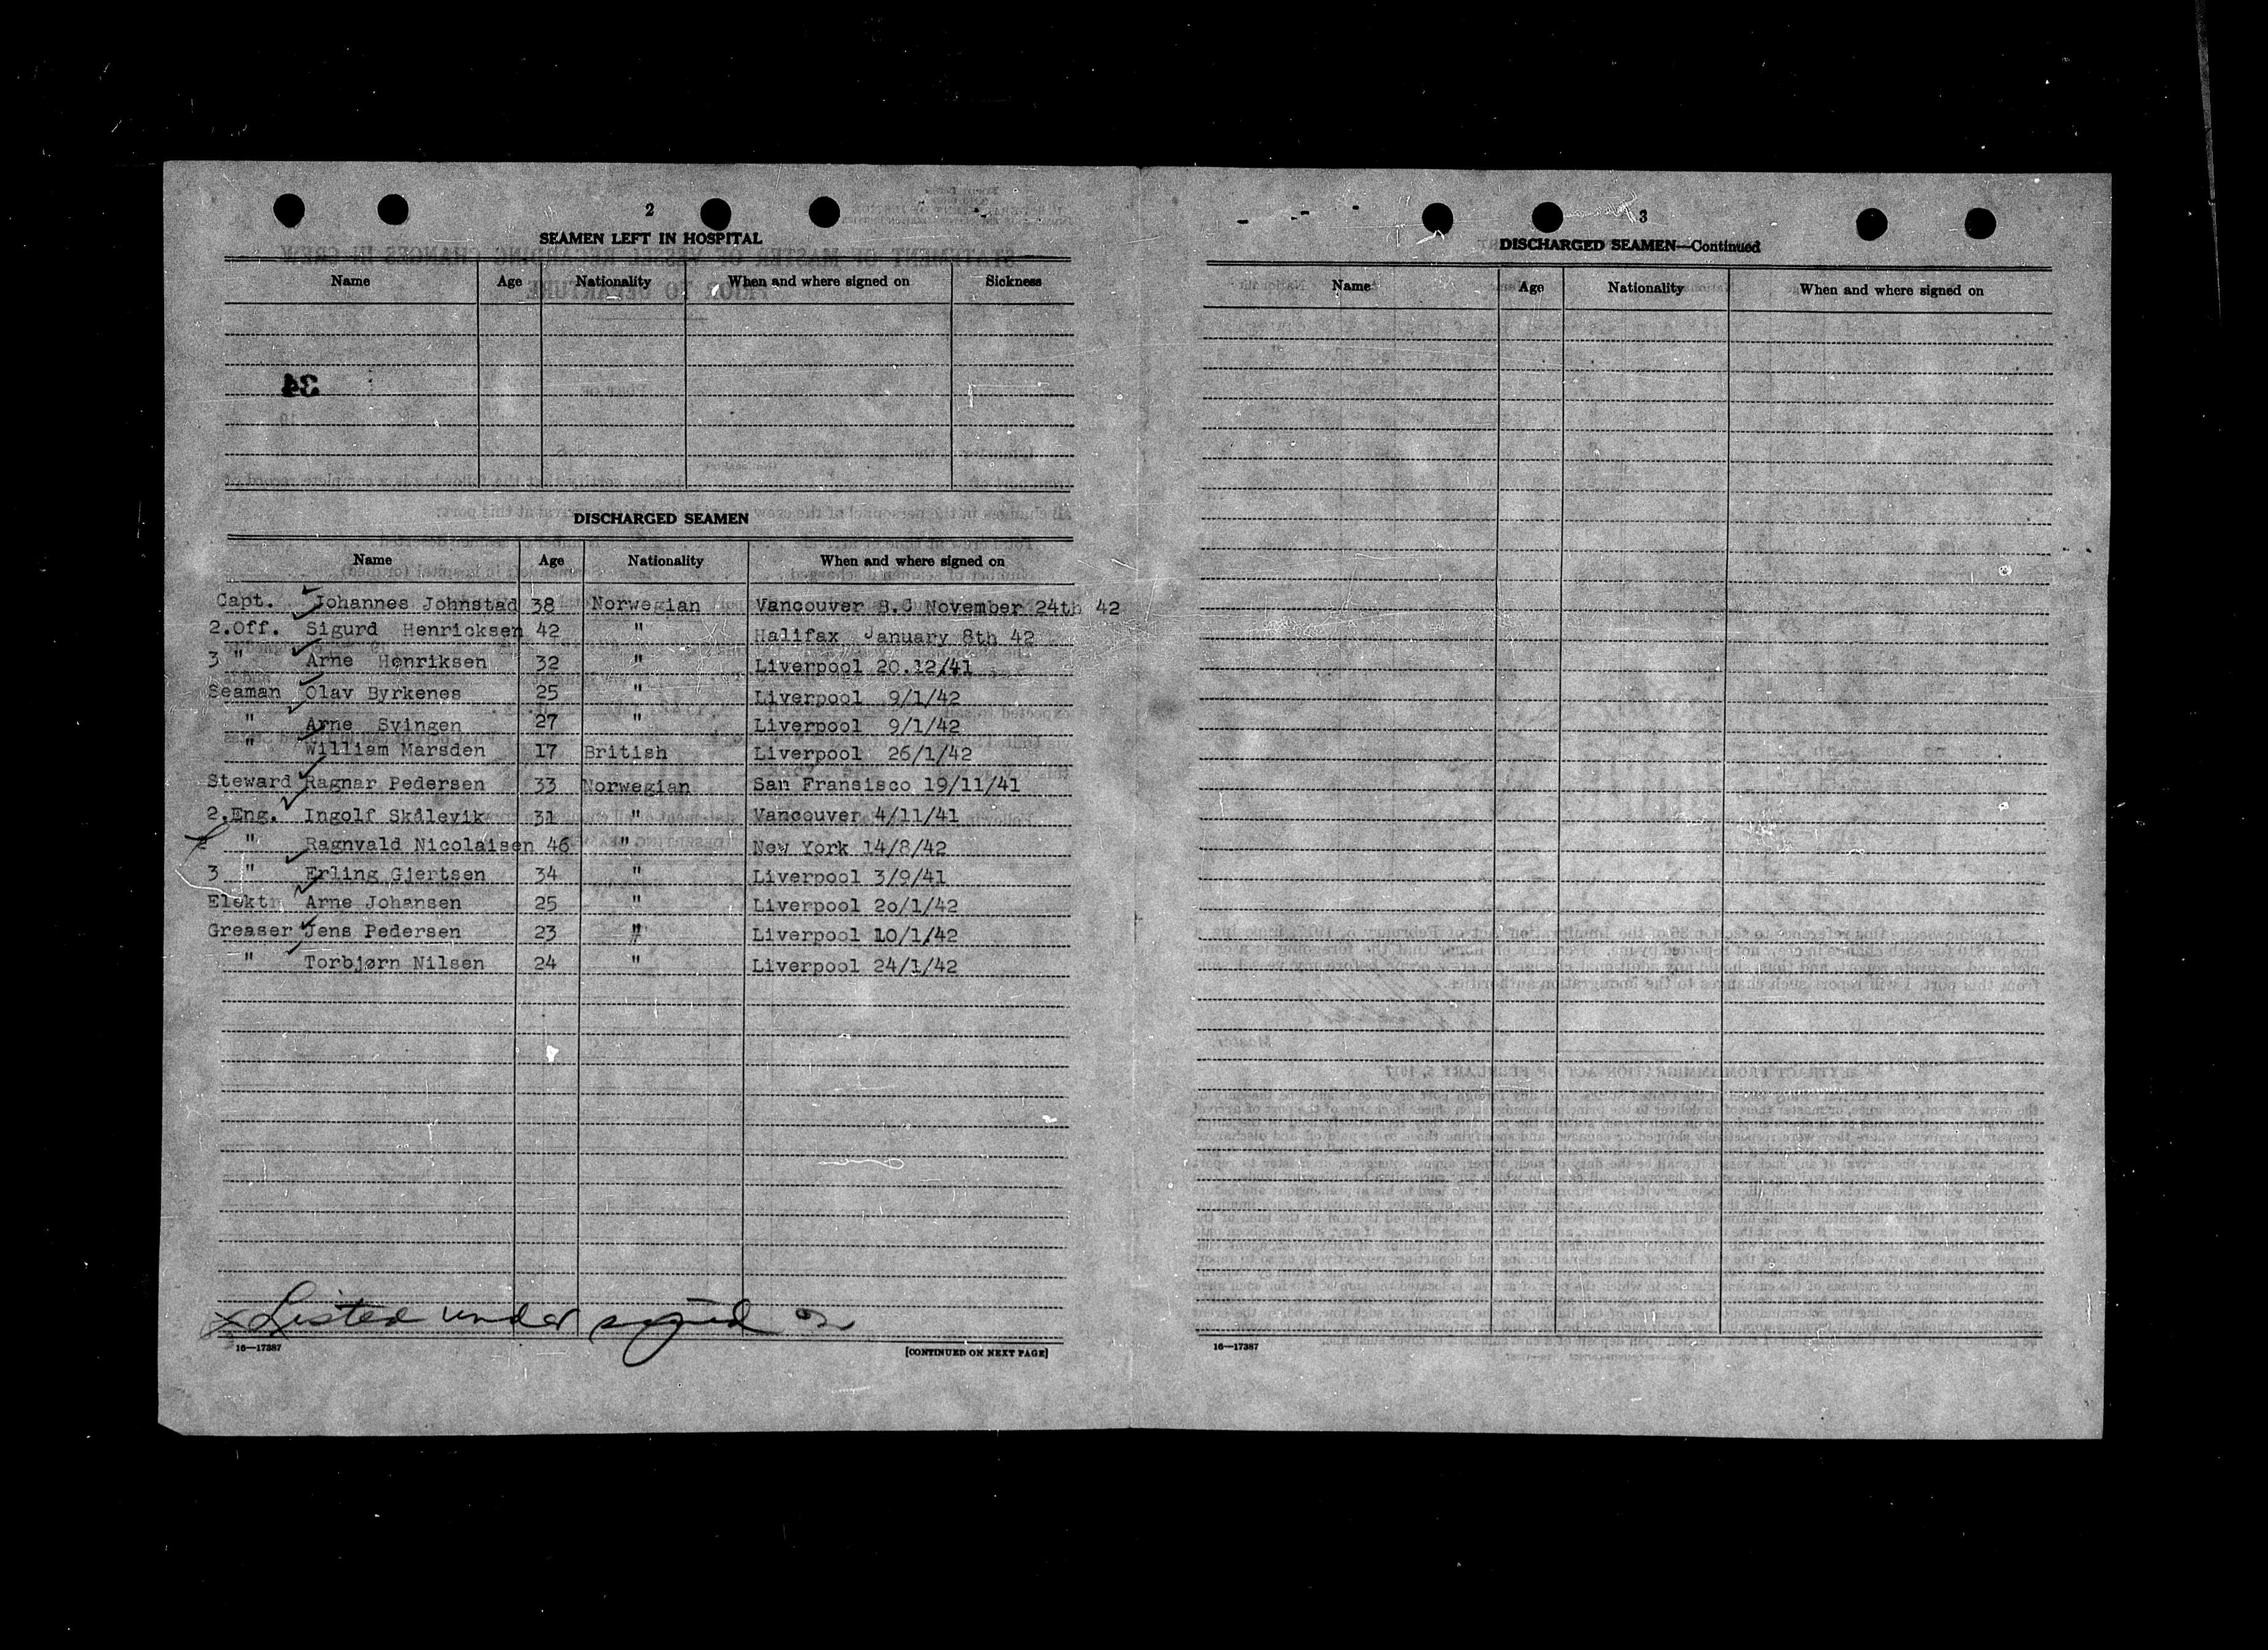 2
SEAMEN LEFT IN HOSPITAL
Name Age Nationality When and where signed on Sickness
34
DISCHARGED SEAMEN
Name Age Nationality When and where signed on
Capt. Johannes Johnstad 38 Norwegian Vancouver B.C November 24th 42
2.Off. Sigurd Henricksen 42 " Halifax January 8th 42
3 " Arne Henriksen 32 " Liverpool 20.12/41
Seaman Olav Byrkenes 25 " Liverpool 9/1/42
" Arne Svingen 27 " Liverpool 9/1/42
" William Marsden 17 British Liverpool 26/1/42
Steward Ragnar Pedersen 33 Norwegian San Fransisco 19/11/41
2.Eng. Ingolf Skålevik 31 " Vancouver 4/11/41
" Ragnvald Nicolaisen 46 " New York 14/8/42
3 " Erling Gjertsen 34 " Liverpool 3/9/41
Elektr Arne Johansen 25 " Liverpool 2o/1/42
Greaser Jens Pedersen 23 " Liverpool 10/1/42
" Torbjørn Nilsen 24 " Liverpool 24/1/42
x Listed under signed on
16—17387 [CONTINUED ON NEXT PAGE]
3
DISCHARGED SEAMEN—Continued
Name Age Nationality When and where signed on
16—17387